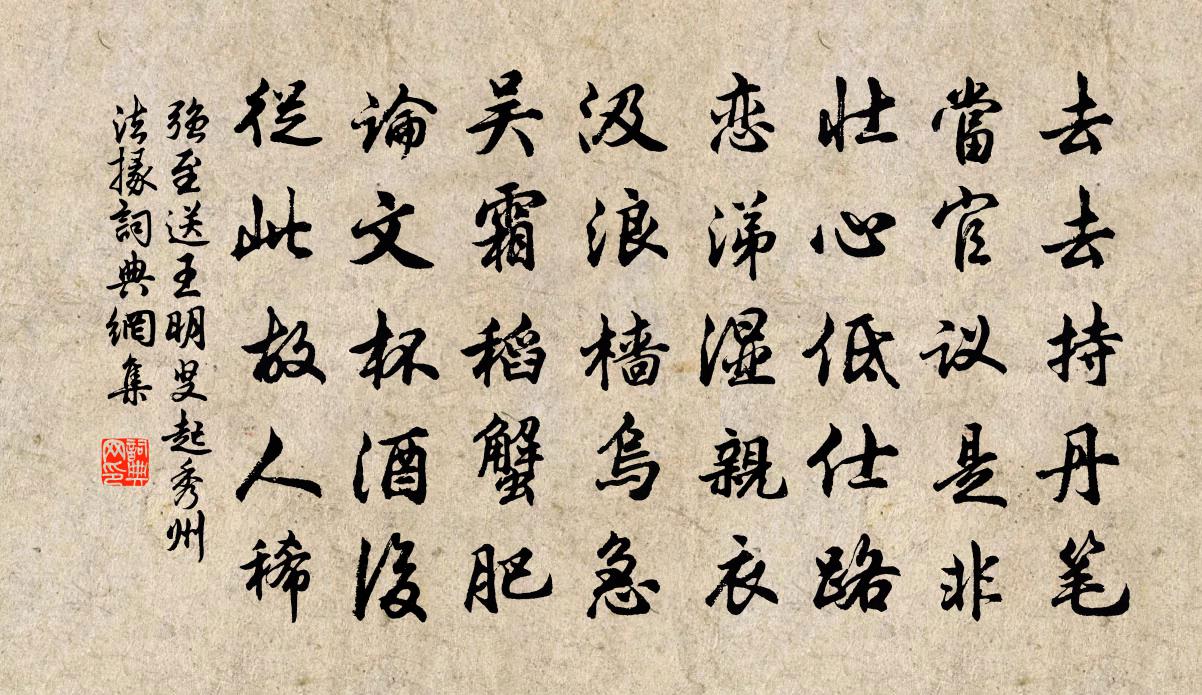 去去持丹笔
當官议是非
壮心低仕路
恋涕湿親衣
汲浪檣烏急
吴霜稻蟹肥
論文杯酒後
從此故人稀
强至送王明叟起秀州
法掾詞典網集
詞典网印